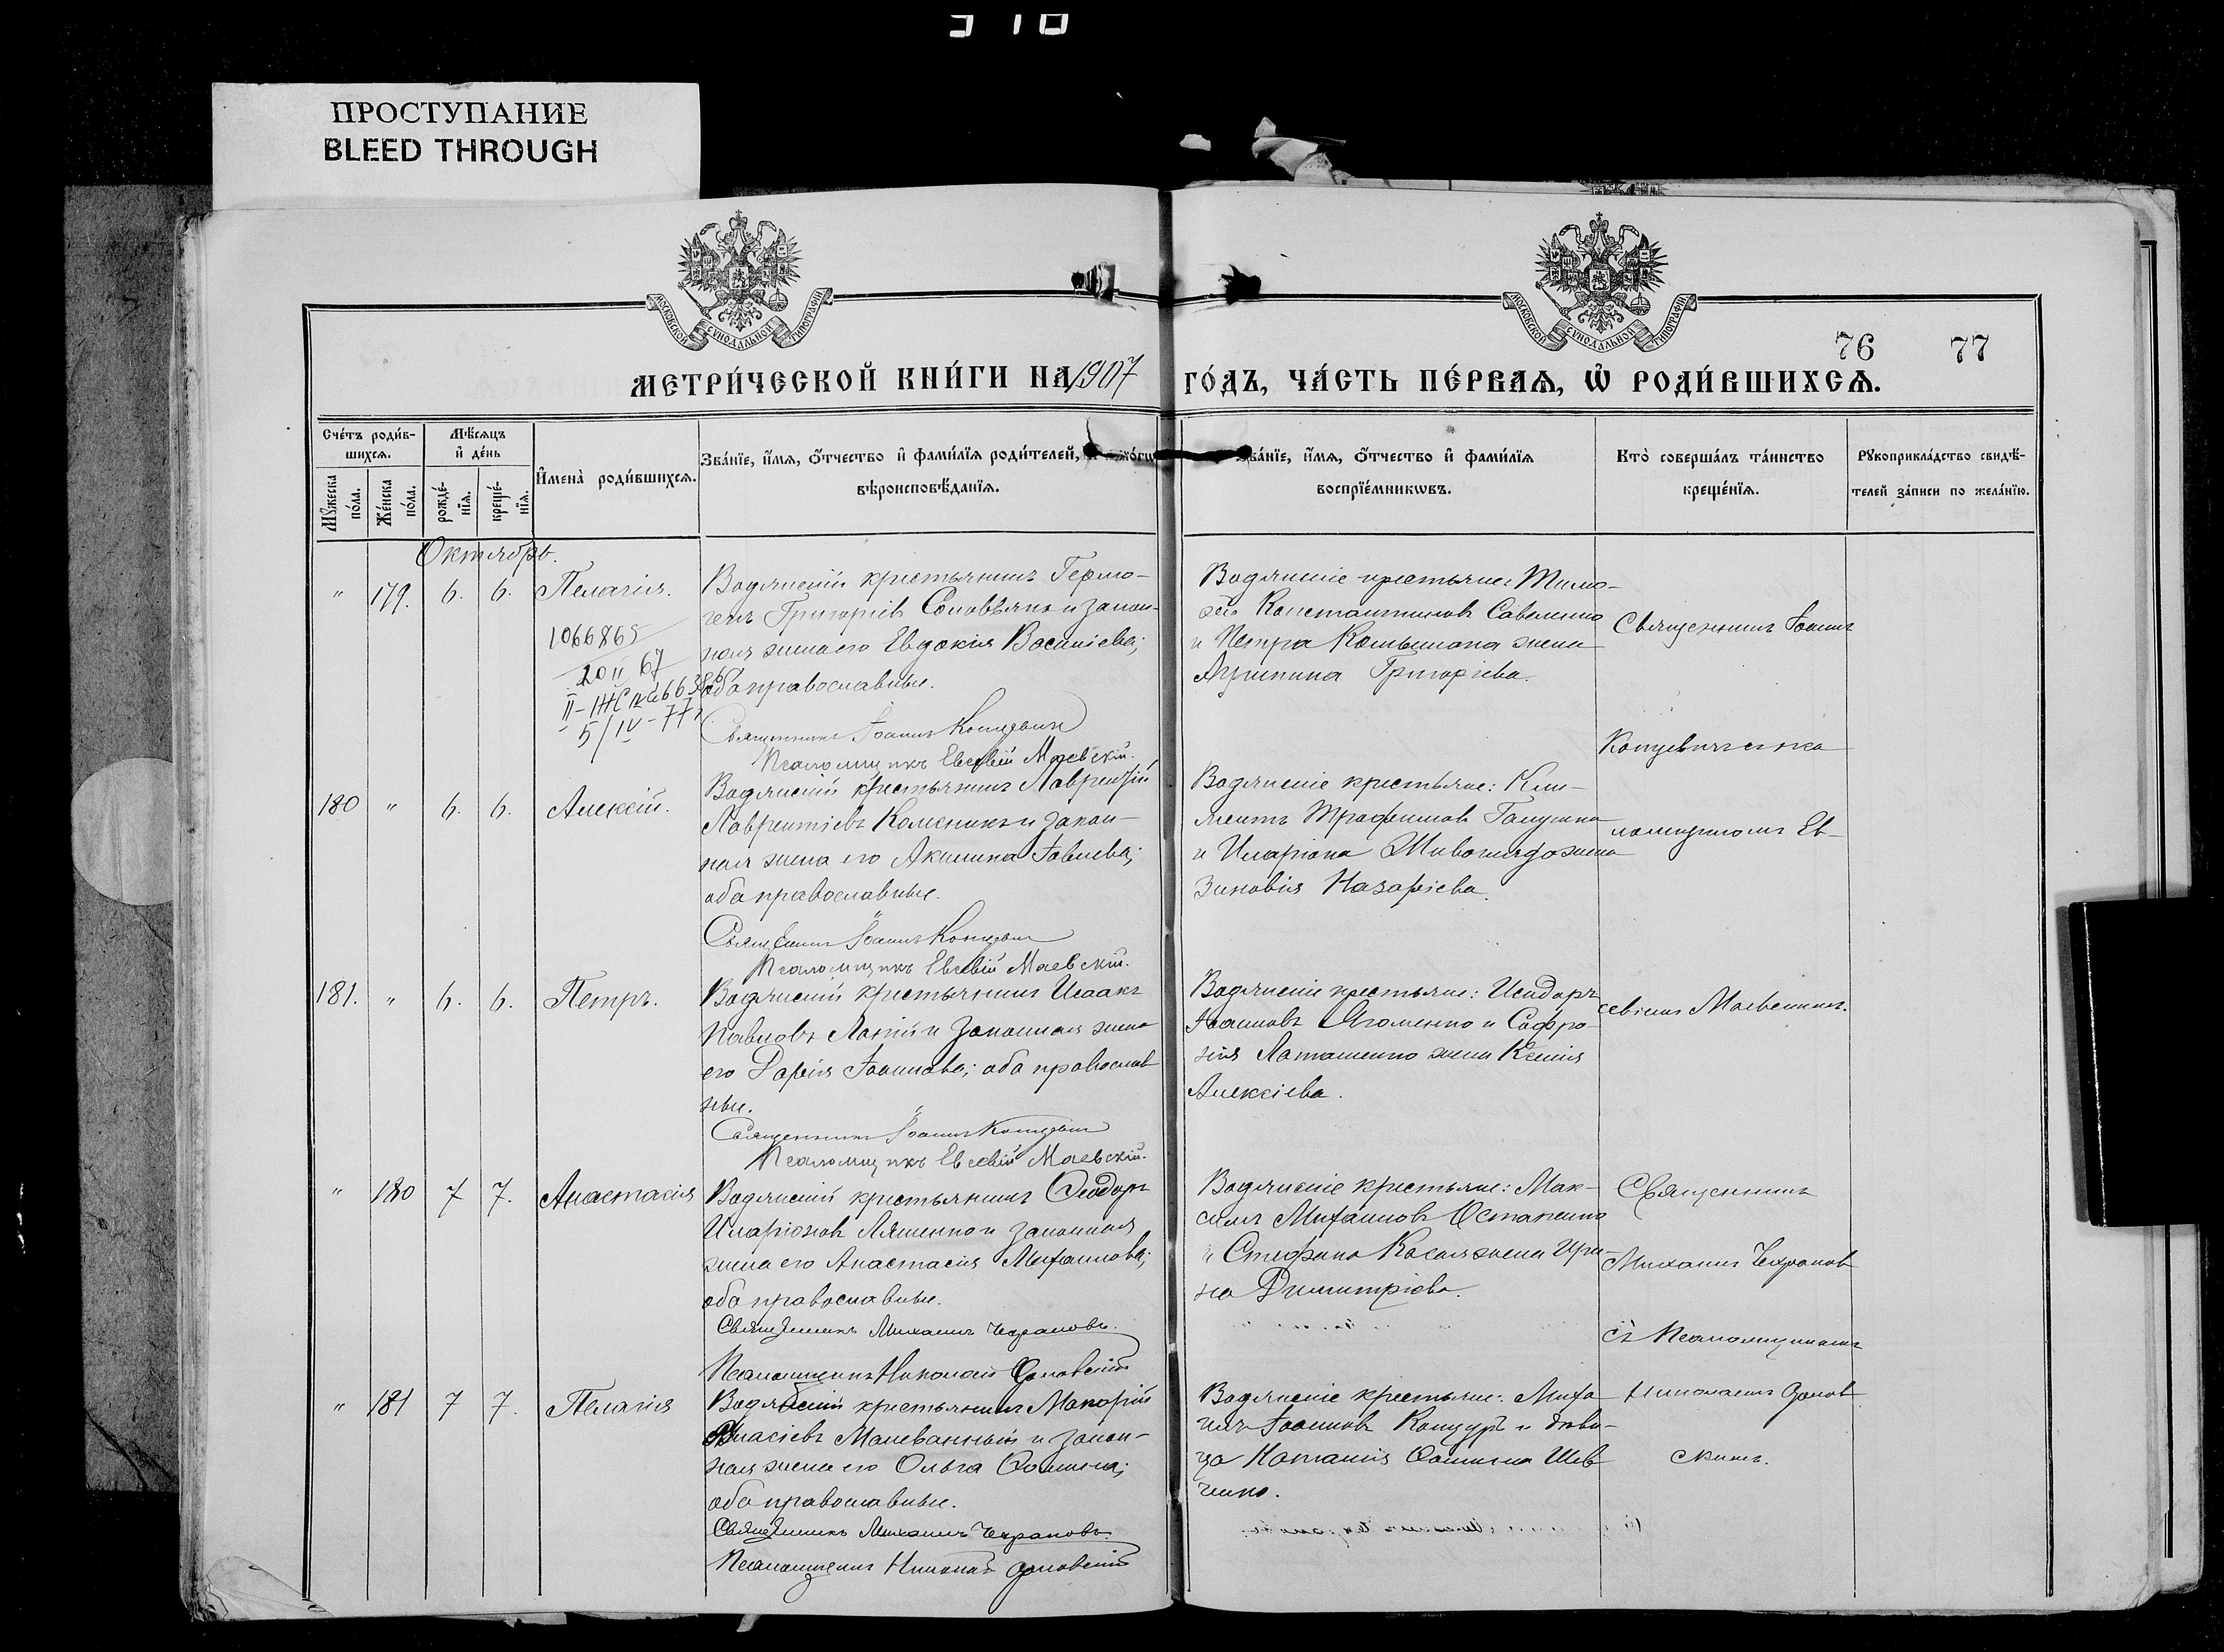 ПРОСТУПАНИЕ
BLEED THROUGH
МОСКОВСКОЙ СУНОДАЛЬНОЙ ТИПОГРАФІИ
МОСКОВСКОЙ СУНОДАЛЬНОЙ ТИПОГРАФІИ
76 77
МЕТРИ́ЧЕСКОЙ КНИ́ГИ НА 1907 ГО́ДЪ, ЧА́СТЬ ПЕ́РВАѦ, Ѡ РОДИ́ВШИХСѦ.
Сче́тъ роди́в-
шихсѧ.
Мѣсяцъ
и де́нь
Мꙋжеска
по́ла.
Же́нска
по́ла.
рожде́-
нїѧ.
креще́-
нїѧ.
Имена̀ роди́вшихсѧ.
Зва́нїе, и́мѧ, о́тчество и фами́лїѧ роди́телей,
вѣроисповѣ́данїѧ.
Зва́нїе, и́мѧ, о́тчество и фами́лїѧ
воспрїе́мниковъ.
Кто̀ соверша́лъ та́инство
креще́нїѧ.
Рꙋкоприкла́дство свидѣ́-
телей за́писи по жела́нїю.
Октябрь.
" 179. 6. 6. Пелагія.
1066865
20 II 67
5/IV-77
Водянскій крестьянинъ Гермо-
генъ Григоріевъ и закон-
ная жена его Евдокія Василіева;
оба православные.
Священникъ Іоаннъ Концевичъ
Псаломщикъ Евсевій Маевскій.
Водянскіе крестьяне: Тимо-
фей Константиновъ Савеленко
и Петра жена
Агрипина Григоріева.
Священникъ Іоаннъ
Концевичъ съ пса
180 " 6. 6. Алексій.
Водянскій крестьянинъ Лаврентій
Лаврентіевъ Коменикъ и закон-
ная жена его Акилина Іовлева;
оба православные.
Священникъ Іоаннъ Концевичъ
Псаломщикъ Евсевій Маевскій.
Водянскіе крестьяне: Кли-
ментъ Трофимовъ Галушка
и Иларіона жена
Зиновія Назаріева.
ломщикомъ Ев-
181. " 6. 6. Петръ.
Водянскій крестьянинъ Исаакъ
Павловъ и законная жена
его Дарія Іоаннова; оба православ
ные.
Священникъ Іоаннъ Концевичъ
Псаломщикъ Евсевій Маевскій.
Водянскіе крестьяне: Исидоръ
Іоанновъ и Софро-
нія Латашенко жена Ксенія
Алексіева.
севіемъ Маевскимъ.
" 180 7 7. Анастасія
Водянскій крестьянинъ Ѳеодоръ
Иларіоновъ Ляшенко и законная
жена его Анастасія Михаилова;
оба православные.
Священникъ Михаилъ Чехрановъ.
Псаломщикъ Николай Орловскій
Водянскіе крестьяне: Мак-
симъ Михаиловъ Остапенко
и Стефана жена Ири-
на Димитріева.
Священникъ
Михаилъ Чехрановъ
съ Псаломщикомъ
" 181 7 7. Пелагія
Водянскій крестьянинъ Макарій
Власіевъ Малеванный и закон-
ная жена его Ольга Ѳомина;
оба православные.
Священникъ Михаилъ Чехрановъ.
Псаломщикъ Николай Орловскій
Водянскіе крестьяне: Миха
илъ Іоанновъ Концуръ и дѣви-
ца Наталія Ѳомина Шев
ченко.
Николаемъ Орлов
скимъ.